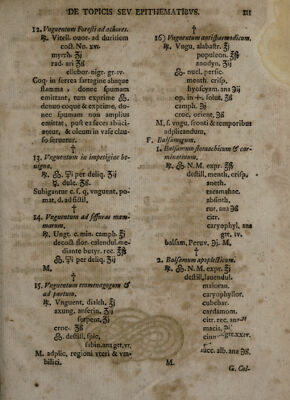 DE TOPICIS SEV EPITHEMATIBVS. III
12. Vnguentum Foresti ad achores.
℞. Vitell. ovor. ad duritiem
coct. No. xv.
myrrh. ʒij
rad. ari ʒß
ellebor. nigr. gr. iv.
Coq. in ferrea sartagine absque
flamma, donec spumam
emittant, tum exprime
denuo coque & exprime, do-
nec spumam non amplius
emittat, post ex faeces abiici-
antur, & oleum in vase clau-
so servetur.
†
13. Vnguentum in impetigine be-
nigna.
℞. per deliq. ʒij
dulc. ʒß.
Subigantur c. s. q. vnguent. po-
mat. d. ad fictil.
†
14. Vnguentum ad fissuras mam-
marum.
℞. Ungt. c. min. camph. ʒj
decoct. flor. calendul. me-
diante butyr. rec.
per deliq. ʒij
M.
†
15. Vnguentum emmenagogum &
ad partum.
℞. Vnguent. dialth. ʒj
axung. anserin. ʒij
serpent. ʒj
croc. ʒß
destill. spic.
sabin. ana gtt. vi.
M. adplic. regioni vteri & vm-
bilici.
†
16) Vnguentum antiphaemodicum.
℞. Vngu. alabastr. ʒj
populeon. ʒß
anodyn. ʒij
nucl. persic.
menth. crisp.
hyoscyam. ana ʒj
op. in solut. ʒß
camph. ℈j
croc. orient. ℈ß
M. s. vngu. fronti & temporibus
adplicandum.
F. Balsamogum.
1. Balsamum stomachicum & car-
minativum.
℞. N.M. expr.
destill. menth. crisp.
aneth.
zacamahac.
absinth.
rut. ana ℈ß
citr.
caryophyl. ana
gtt. iv.
balsam. Peruv. ℈j. M.
†
2. Balsamum apoplecticum.
℞. N. M. expr.
destill. lauendul.
maioran.
caryophyllor.
cubebar.
cardamom.
citr. rec. ana ℈j
macis.
cinn gtt. xxiv.
succ. alb. ana ℈ß.
M.
G. Col-